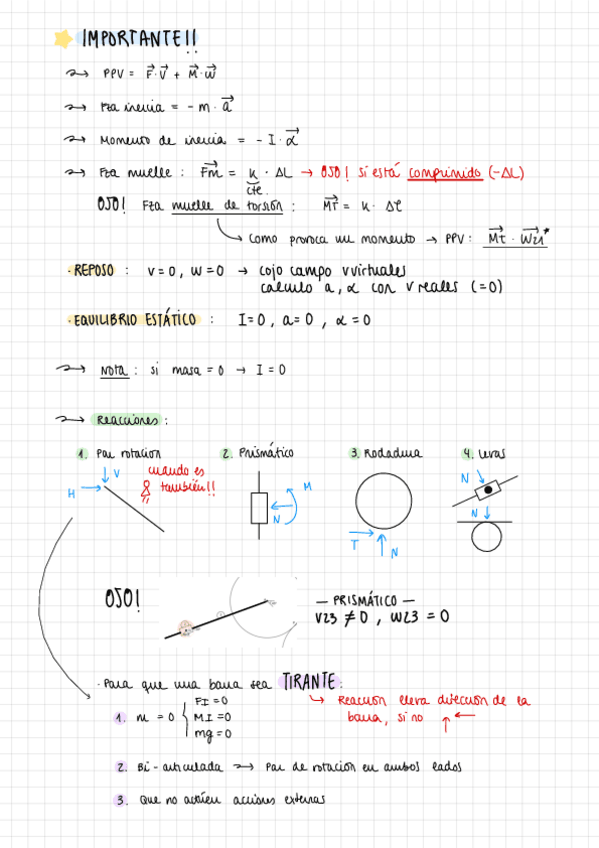 IMPORTANTE!!
PPV = F·V + M·W
Fza inercia = - m · a
Momento de inercia = - I · α
Fza muelle : Fm = k · ΔL → OJO! si está comprimido (-ΔL)
cte.
OJO! Fza muelle de torsión : MT = k · Δθ
Como provoca un momento → PPV: Mt · W21*
· REPOSO : v=0, w=0 → cojo campo v virtuales
calculo a, α con v reales (=0)
· EQUILIBRIO ESTÁTICO : I=0, a=0, α=0
Nota : si masa = 0 → I = 0
Reacciones :
1. Par rotacion
2. Prismático
3. Rodadura
4. Levas
cuando es
también!!
V
H
M
N
T
N
N
N
OJO!
— PRISMÁTICO —
V23 ≠ 0, W23 = 0
· Para que una barra sea TIRANTE:
Reacción lleva dirección de la
barra, si no
1. m = 0 { FI = 0
MI = 0
mg = 0
2. Bi-articulada → Par de rotación en ambos lados
3. Que no actúen acciones externas